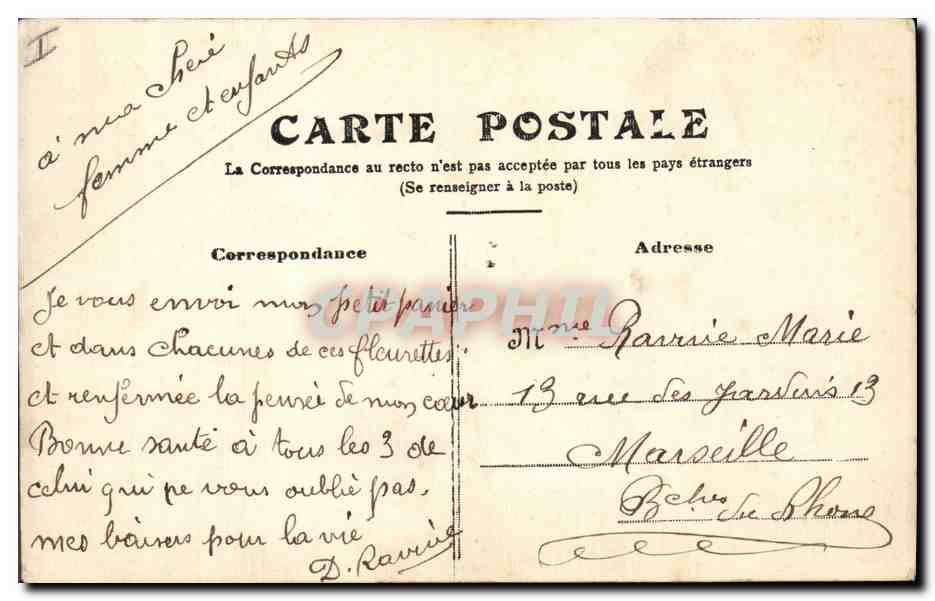 I
à ma Chère
femme et enfants
CARTE POSTALE
La Correspondance au recto n'est pas acceptée par tous les pays étrangers
(Se renseigner à la poste)
Correspondance
Je vous envoi mon petit panier
et dans chacunes de ces fleurettes
et renfermée la pensée de mon cœur
Bonne santé à tous les 3 de
celui qui ne vous oublie pas,
mes baisers pour la vie
D. Ravine
Adresse
Mme Ravine Marie
13 rue des Jardins 13
Marseille
Bches du Rhone
CPAPHIL